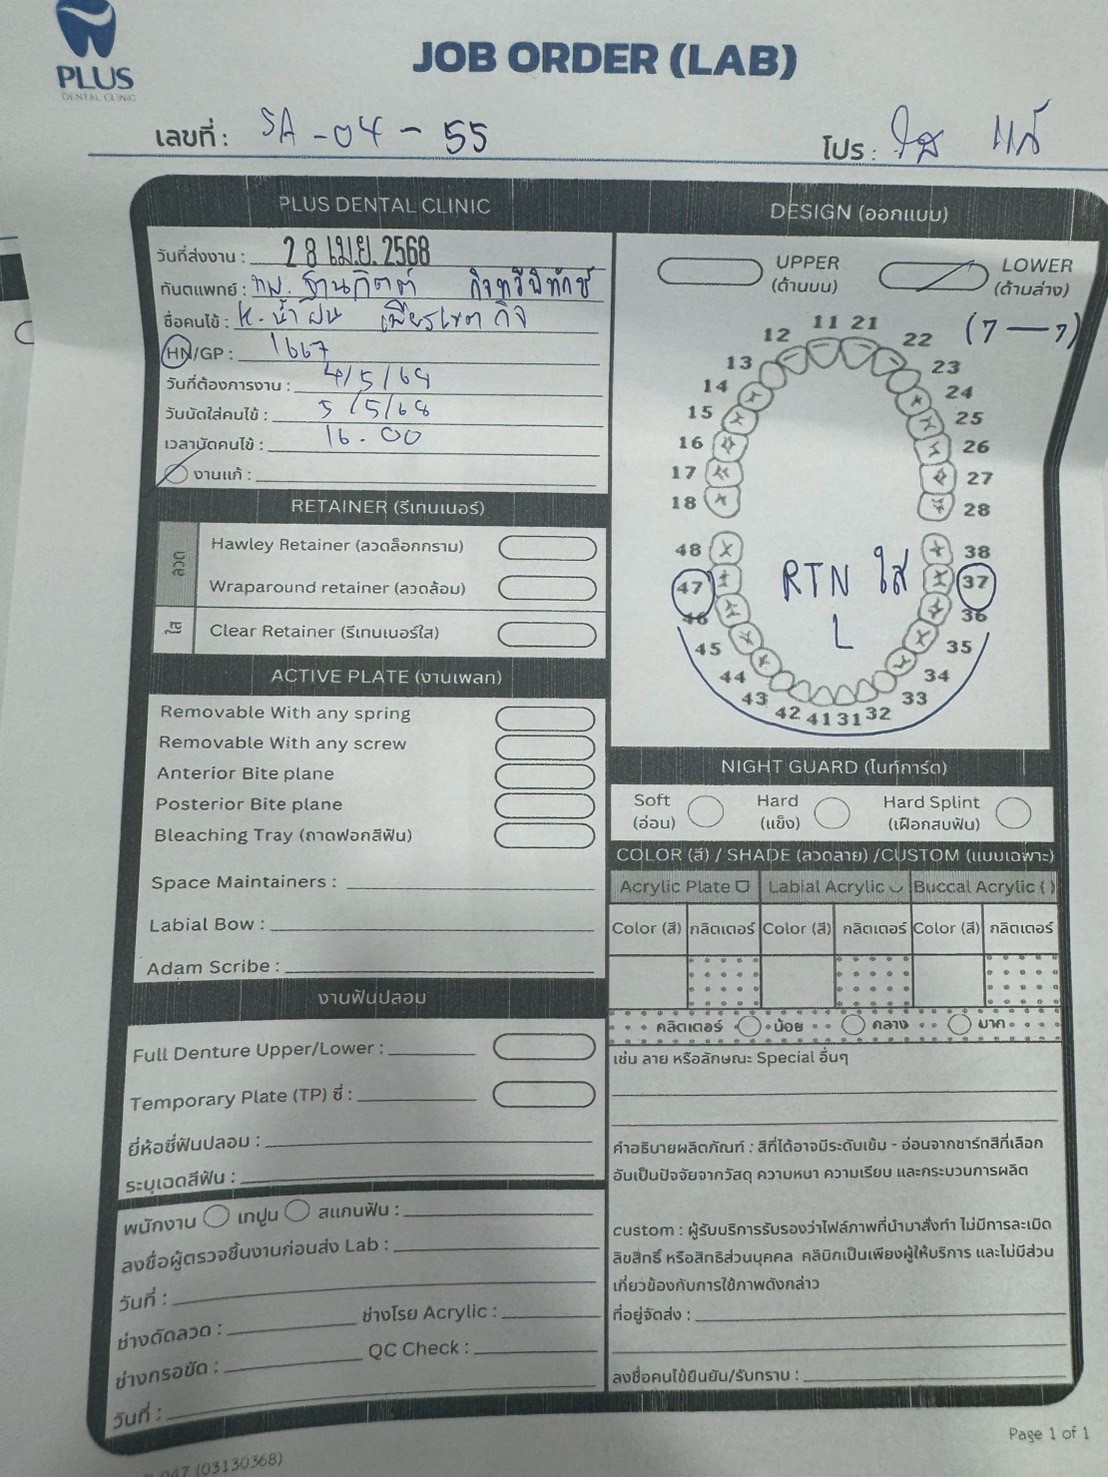 PLUS
DENTAL CLINIC
JOB ORDER (LAB)
เลขที่ : SA-04-55
โปร : ใส
PLUS DENTAL CLINIC
วันที่ส่งงาน : 28 เม.ย. 2568
ทันตแพทย์ : ทพ. ฐานกิตต์ กิจทวีพิทักษ์
ชื่อคนไข้ : K. น้ำฝน เพียรเขตกิจ
HN/GP : 1667
วันที่ต้องการงาน : 4/5/68
วันนัดใส่คนไข้ : 5/5/68
เวลานัดคนไข้ : 16.00
งานแก้ :
DESIGN (ออกแบบ)
UPPER
(ด้านบน)
LOWER
(ด้านล่าง)
(7—7)
11 21
12 22
13 23
14 24
15 25
16 26
17 27
18 28
48 38
47 37
46 36
45 35
44 34
43 33
42 41 31 32
RTN ใส
L
RETAINER (รีเทนเนอร์)
ลวด
Hawley Retainer (ลวดล็อกกราม)
Wraparound retainer (ลวดล้อม)
ใส
Clear Retainer (รีเทนเนอร์ใส)
ACTIVE PLATE (งานเพลท)
Removable With any spring
Removable With any screw
Anterior Bite plane
Posterior Bite plane
Bleaching Tray (ถาดฟอกสีฟัน)
Space Maintainers :
Labial Bow :
Adam Scribe :
งานฟันปลอม
Full Denture Upper/Lower :
Temporary Plate (TP) ซี่ :
ยี่ห้อซี่ฟันปลอม :
ระบุเฉดสีฟัน :
พนักงาน เทปูน สแกนฟัน :
ลงชื่อผู้ตรวจชิ้นงานก่อนส่ง Lab :
วันที่ :
ช่างดัดลวด : ช่างโรย Acrylic :
ช่างกรอขัด : QC Check :
วันที่ :
NIGHT GUARD (ไนท์การ์ด)
Soft
(อ่อน)
Hard
(แข็ง)
Hard Splint
(เฝือกสบฟัน)
COLOR (สี) / SHADE (ลวดลาย) /CUSTOM (แบบเฉพาะ)
Acrylic Plate Labial Acrylic Buccal Acrylic ( )
Color (สี) กลิตเตอร์ Color (สี) กลิตเตอร์ Color (สี) กลิตเตอร์
กลิตเตอร์ น้อย กลาง มาก
เช่น ลาย หรือลักษณะ Special อื่นๆ
คำอธิบายผลิตภัณฑ์ : สีที่ได้อาจมีระดับเข้ม - อ่อนจากชาร์ทสีที่เลือก
อันเป็นปัจจัยจากวัสดุ ความหนา ความเรียบ และกระบวนการผลิต
custom : ผู้รับบริการรับรองว่าไฟล์ภาพที่นำมาสั่งทำ ไม่มีการละเมิด
ลิขสิทธิ์ หรือสิทธิส่วนบุคคล คลินิกเป็นเพียงผู้ให้บริการ และไม่มีส่วน
เกี่ยวข้องกับการใช้ภาพดังกล่าว
ที่อยู่จัดส่ง :
ลงชื่อคนไข้ยืนยัน/รับทราบ :
Page 1 of 1
047 (03130368)